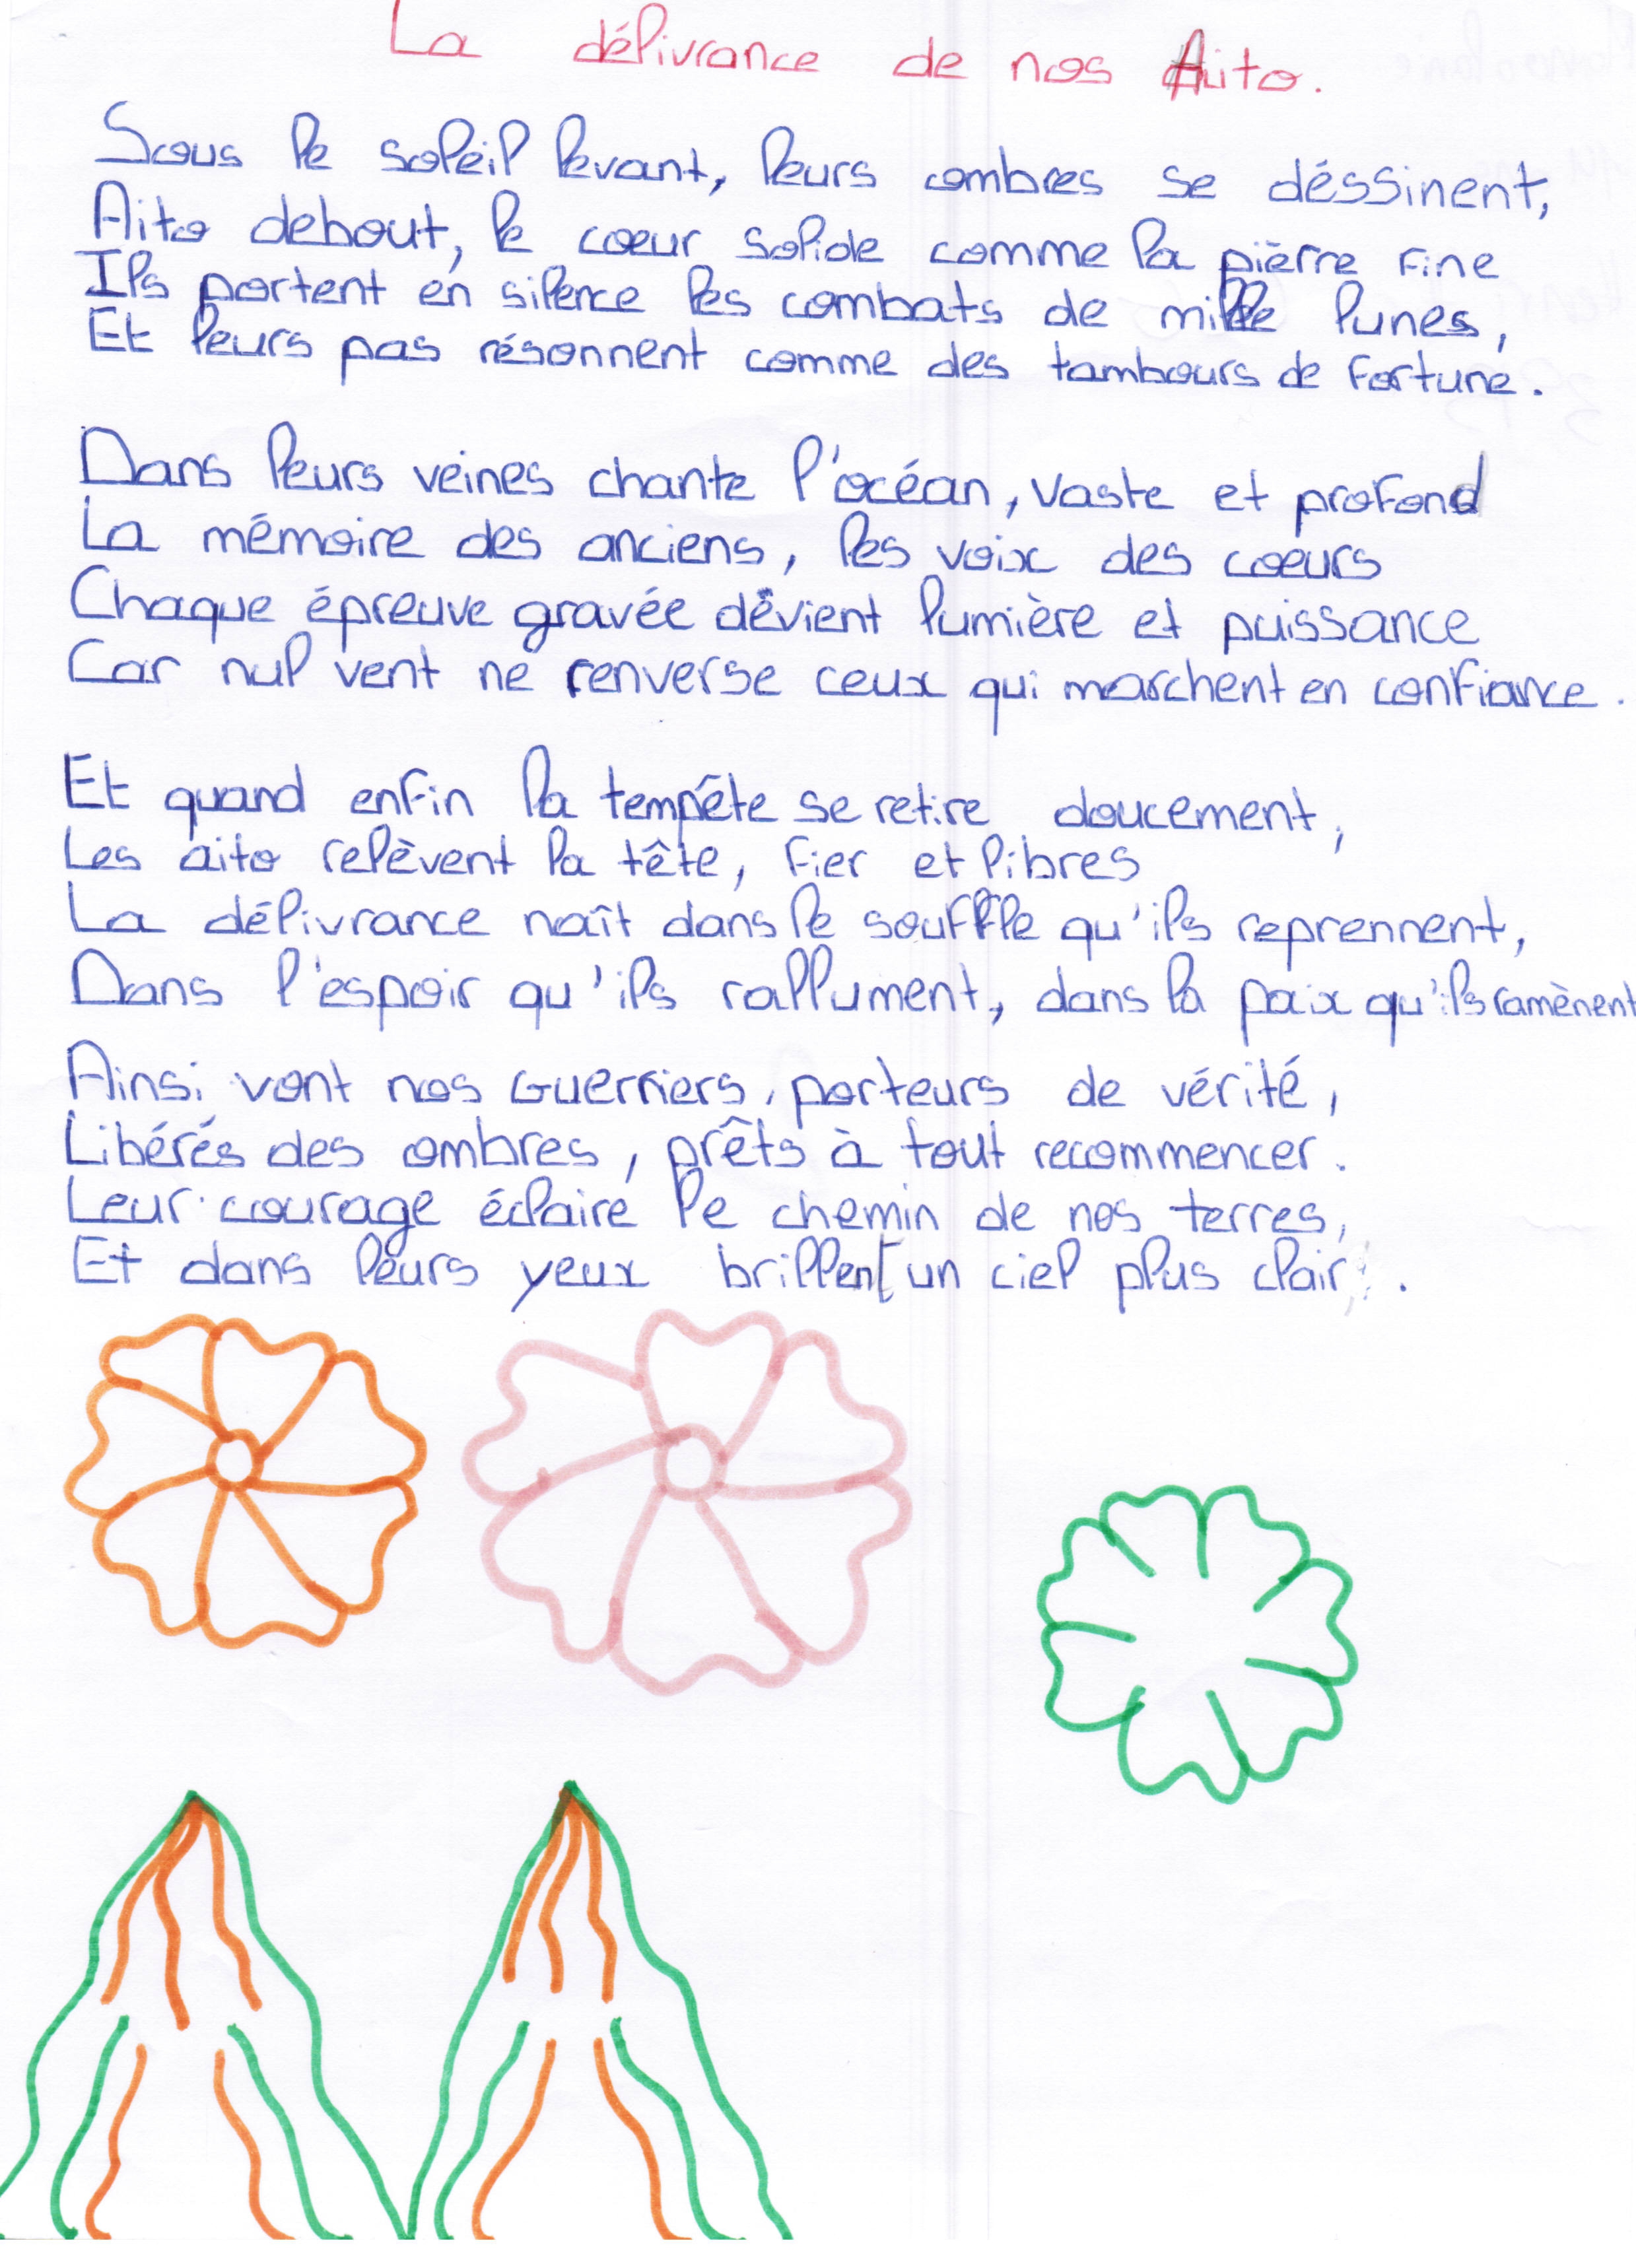 La délivrance de nos Aito.
Sous le soleil levant, leurs ombres se déssinent,
Aito debout, le coeur solide comme la pièrre fine
Ils portent en silence les combats de mille lunes,
Et leurs pas résonnent comme des tambours de fortune.
Dans leurs veines chante l'océan, vaste et profond
La mémoire des anciens, les voix des coeurs
Chaque épreuve gravée devient lumière et puissance
Car nul vent ne renverse ceux qui marchent en confiance.
Et quand enfin la tempête se retire doucement,
Les aito relèvent la tête, fier et libres
La délivrance naît dans le souffle qu'ils reprennent,
Dans l'espoir qu'ils rallument, dans la paix qu'ils ramènent
Ainsi vont nos Guerriers, porteurs de vérité,
Libérés des ombres, prêts à tout recommencer.
Leur courage éclaire le chemin de nos terres,
Et dans leurs yeux brillent un ciel plus clair.